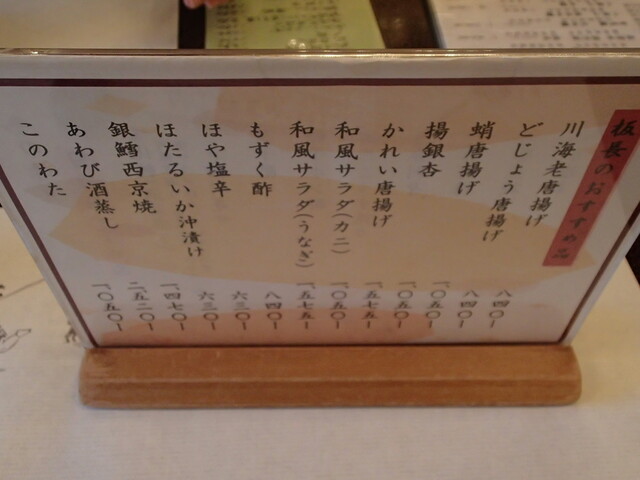 板長のおすすめ品
川海老唐揚げ 八四〇ー
どじょう唐揚げ 八四〇ー
蛸唐揚げ 一、〇五〇ー
揚銀杏 一、〇五〇ー
かれい唐揚げ 一、五七五ー
和風サラダ(カニ) 一、〇五〇ー
和風サラダ(うなぎ) 一、五七五ー
もずく酢 八四〇ー
ほや塩辛 六三〇ー
ほたるいか沖漬け 六三〇ー
銀鱈西京焼 一、四七〇ー
あわび酒蒸し 二、五二〇ー
このわた 一、〇五〇ー